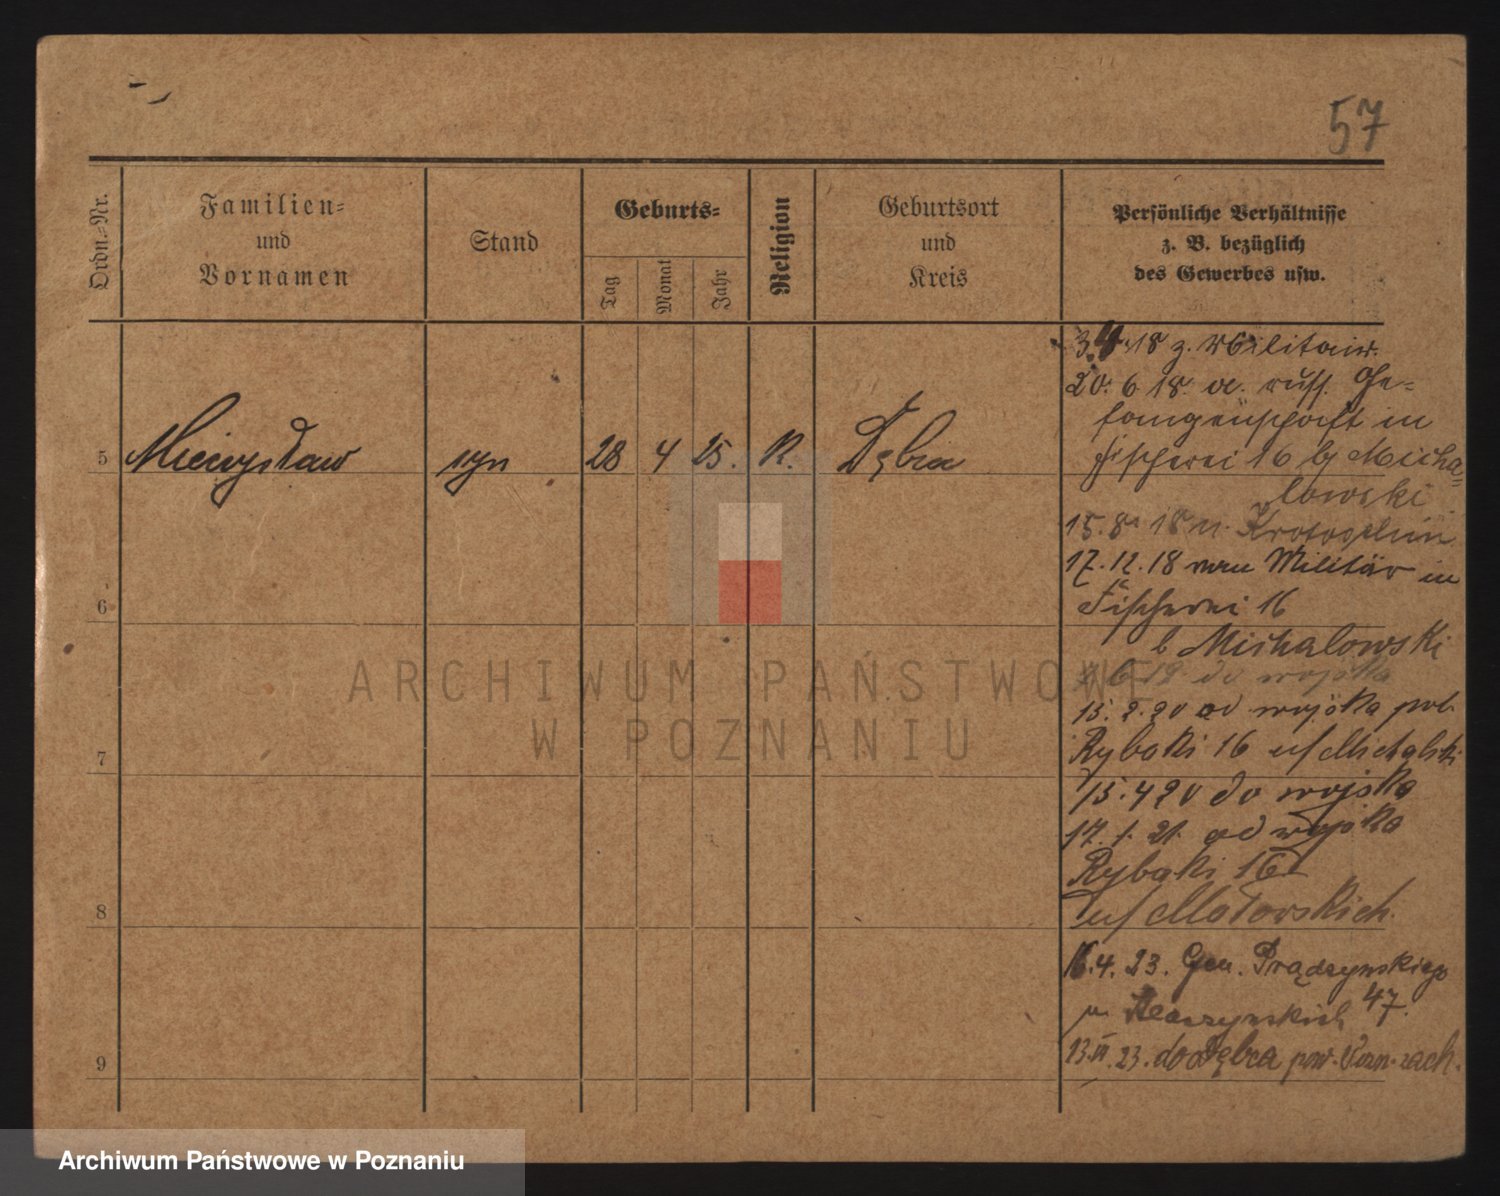 57
Ordn.=Nr.
Familien=
und
Vornamen
Stand
Geburts=
Tag
Monat
Jahr
Religion
Geburtsort
und
Kreis
Persönliche Verhältnisse
z. B. bezüglich
des Gewerbes usw.
5
Mieczysław
syn
28
4
25.
K.
Dębiec
18 z. Militair.
20. 6 18. a. russ. Ge=
fangenschaft in
Fischerei 16 b/ Micha=
lowski
15. 8. 18 n. Krotoschin
17. 12. 18 vom Militär in
Fischerei 16
b Michalowski
6
6. 19 do wojska
15. 2. 20 od wojska pob.
Rybaki 16
7
15. 4 20 do wojska
17. 1. 21. od wojska
Rybaki 16
8
16. 4. 23. Gen. Prądzynskiego
47.
13. 23. do Dębca pow. Pozn. zach.
9
ARCHIWUM PAŃSTWOWE
W POZNANIU
Archiwum Państwowe w Poznaniu